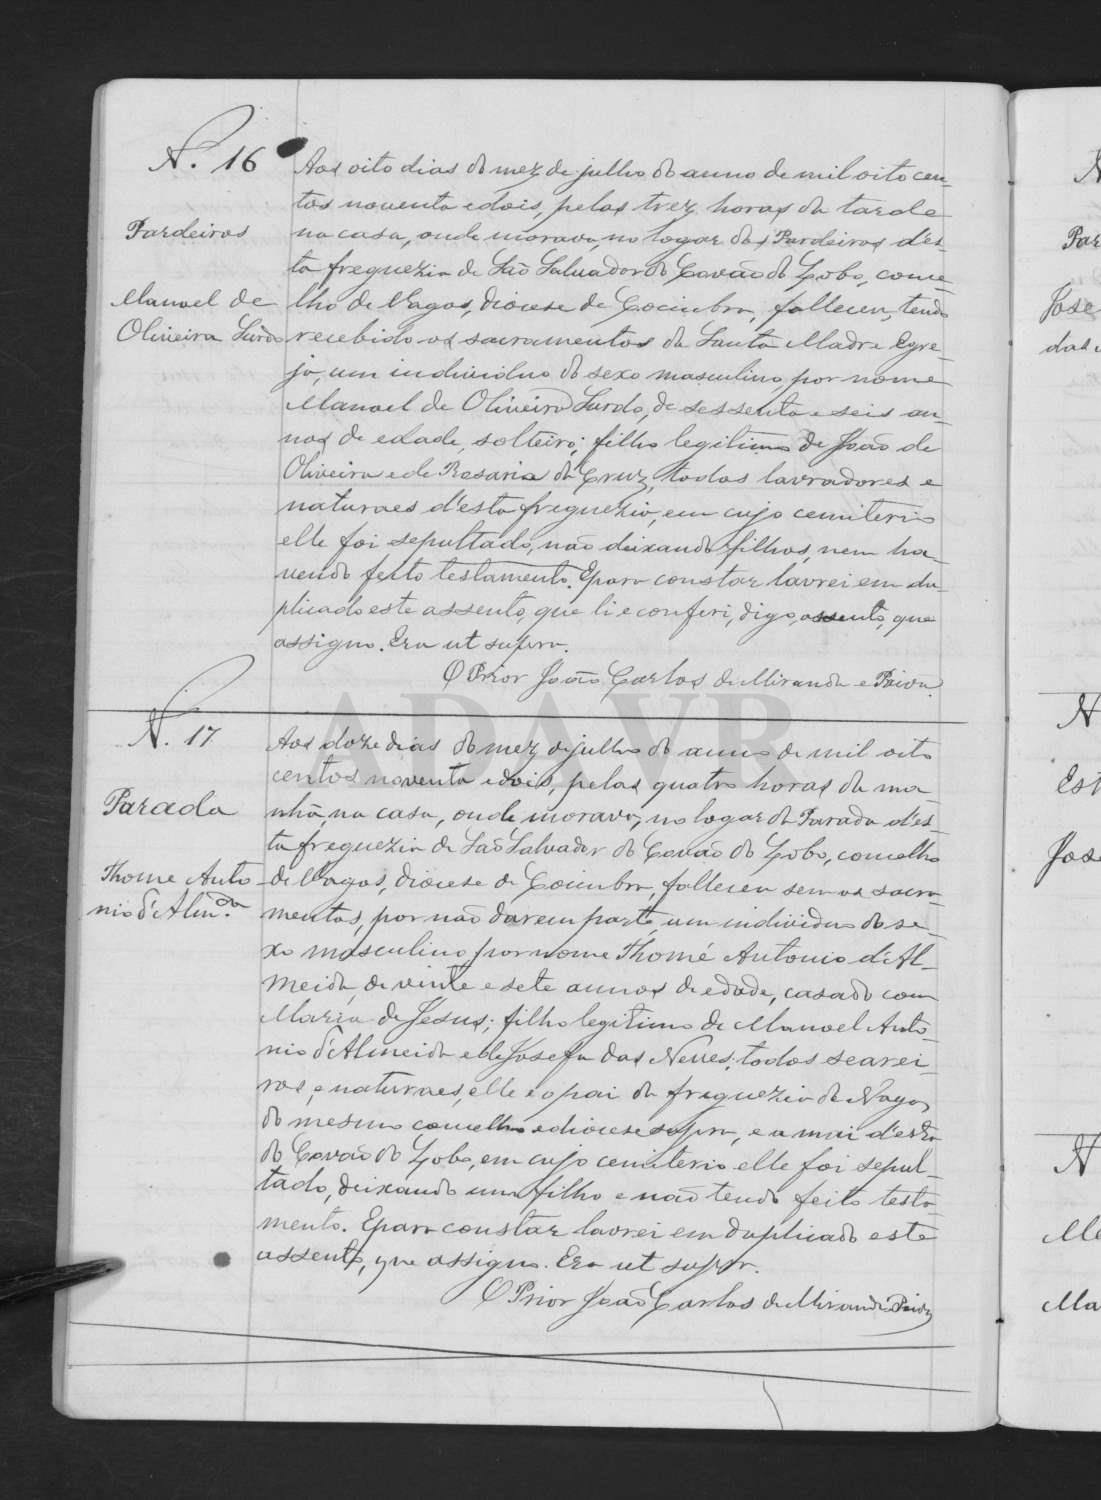 N. 16
Pardeiros
Manoel de
Oliveira Surdo
Aos oito dias do mez de julho do anno de mil oito cen-
tos noventa e dois, pelas trez horas da tarde
na casa, onde morava, no logar dos Pardeiros d'es-
ta freguezia de São Salvador do Covão do Lobo, conce-
lho de Vagos, diocese de Coimbra, falleceu, tendo
recebido os sacramentos da Santa Madre Egre-
ja, um individuo do sexo masculino por nome
Manoel de Oliveira Surdo, de sessenta e seis an-
nos de edade, solteiro; filho legitimo de João de
Oliveira e de Rosaria da Cruz, todos lavradores e
naturaes d'esta freguezia, em cujo cemiterio
elle foi sepultado, não deixando filhos, nem ha-
vendo feito testamento. E para constar lavrei em du-
plicado este assento, que li e conferi, digo, assento, que
assigno. Era ut supra.
O Prior João Carlos de Miranda e Paiva.
ADAVR
N. 17
Parada
Thome Anto
nio d'Alm.da
Aos doze dias do mez de julho do anno de mil oito
centos noventa e dois, pelas quatro horas da ma-
nhã, na casa, onde morava, no logar da Parada d'es-
ta freguezia de São Salvador do Covão do Lobo, concelho
de Vagos, diocese de Coimbra, falleceu sem os sacra-
mentos, por não darem parte, um individuo do se-
xo masculino por nome Thomé Antonio d'Al-
meida, de vinte e sete annos de edade, casado com
Maria de Jesus; filho legitimo de Manoel Anto-
nio d'Almeida e de Josefa das Neves; todos searei-
ros, e naturaes, elle e o pai da freguezia de Vagos
do mesmo concelho e diocese supra, e a mai d'esta
do Covão do Lobo, em cujo cemiterio elle foi sepul-
tado, deixando um filho e não tendo feito testa-
mento. E para constar lavrei em duplicado este
assento, que assigno. Era ut supra.
O Prior João Carlos de Miranda e Paiva
N
Par
Jose
das
N
Est
Jose
N
Ma